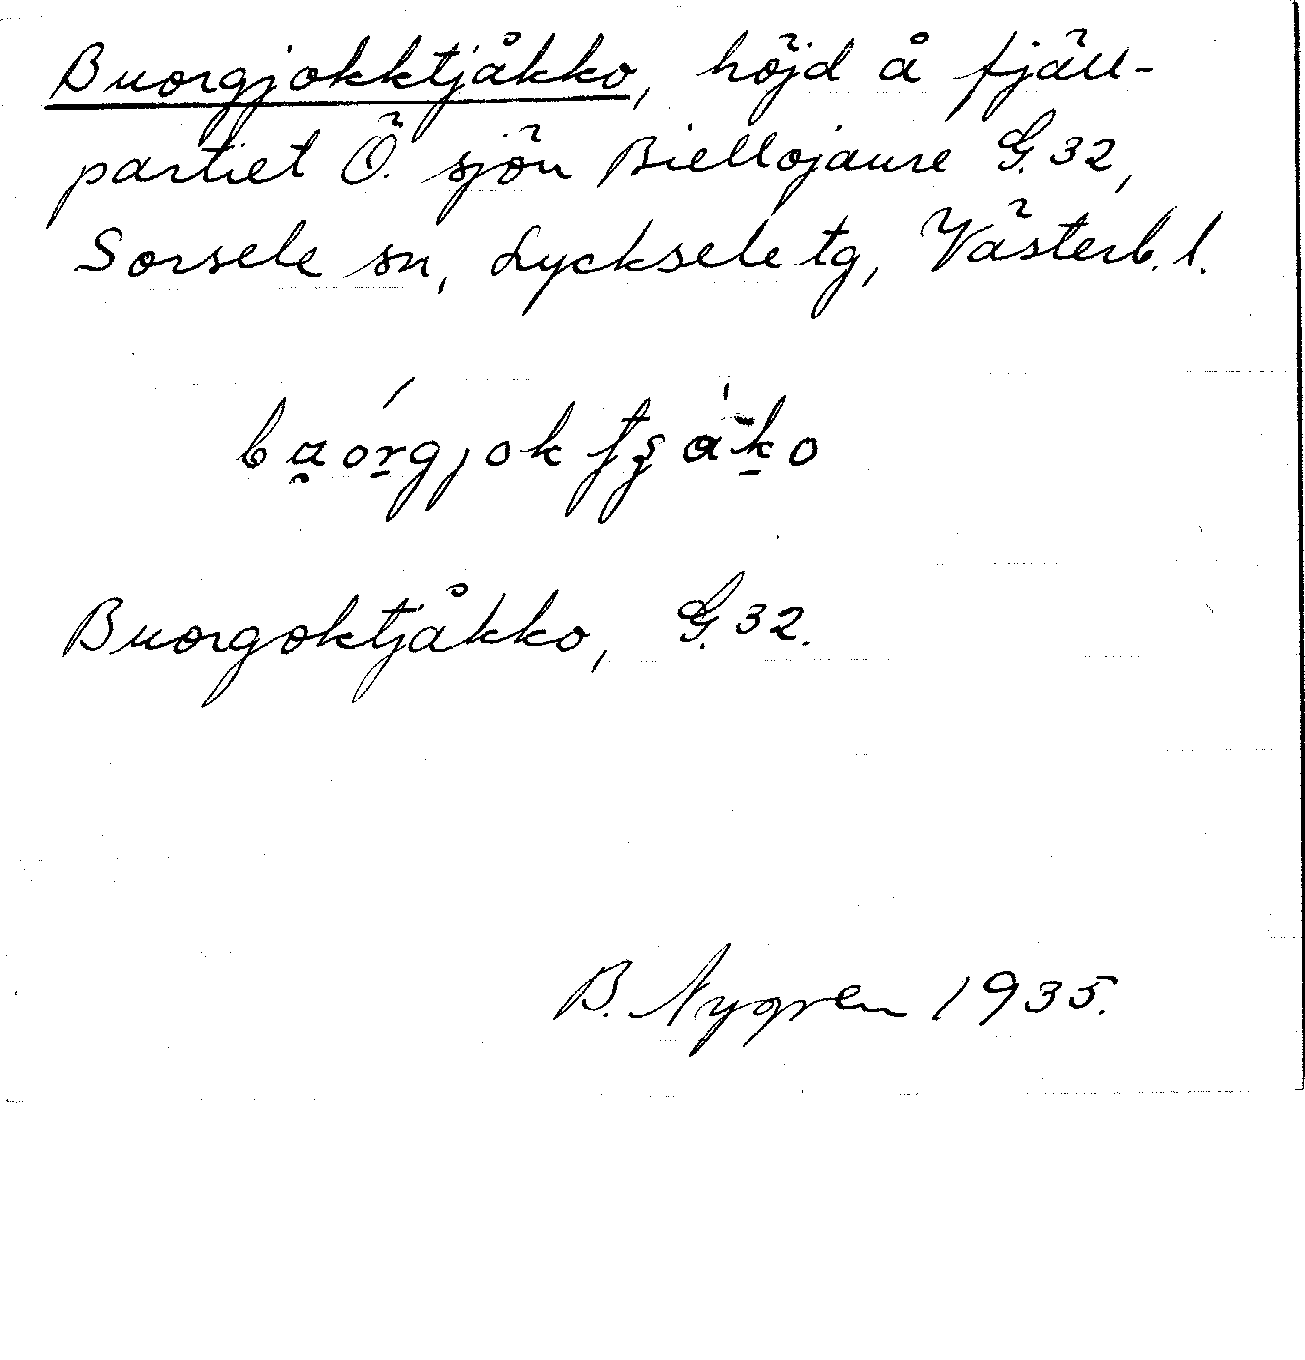 Buorgjokktjåkko, höjd å fjäll-
partiet Ö. sjön Biellojaure G. 32,
Sorsele sn, Lycksele tg, Västerb. l.
Buorgoktjåkko, G. 32.
B. Nygren 1935.